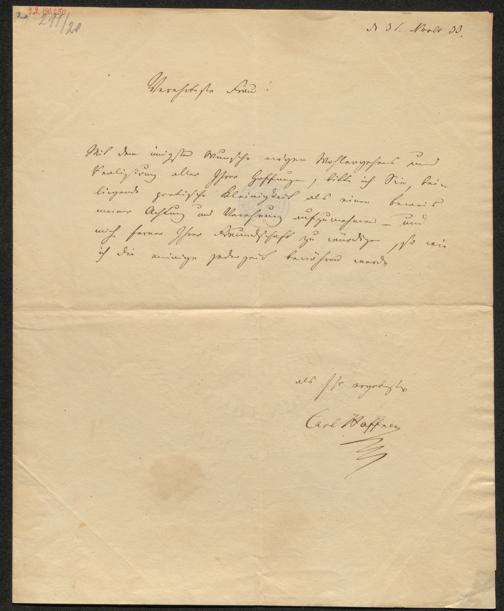 d 31. 33.
Verehrteste Frau!
Mit dem innigsten Wunsche ewigen Wohlergehens und
Realisirung aller Ihrer Hoffnungen, bitte ich Sie, bei-
liegende poetische Kleinigkeit als einen Beweis
meiner Achtung und Verehrung aufzunehmen – und
mich ferner Ihrer Freundschaft zu würdigen, so wie
ich die meinige jederzeit bewähren werde
als Ihr ergebenster
Carl Haffner